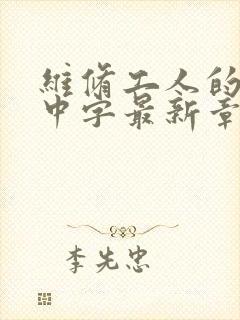 維脩工人的
中字最新章
李先忠